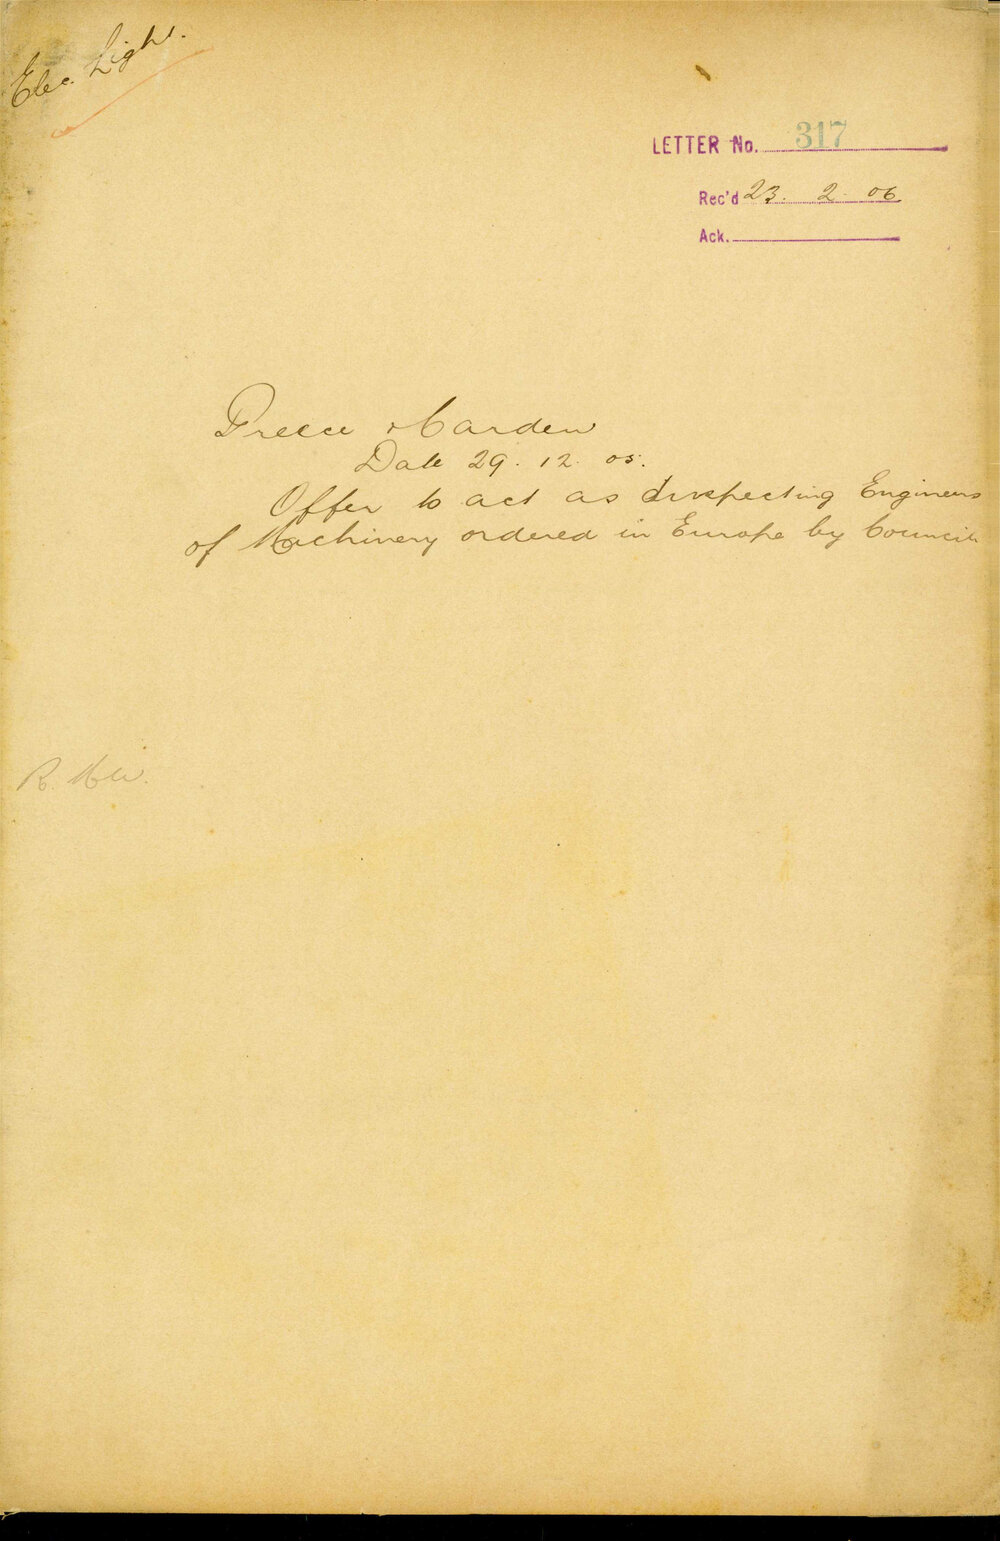 Elec. Light.
LETTER No. 317
Rec'd 23. 2. 06
Ack.
Preece & Carden
Date 29. 12. 05.
Offer to act as Inspecting Engineers
of Machinery ordered in Europe by Council